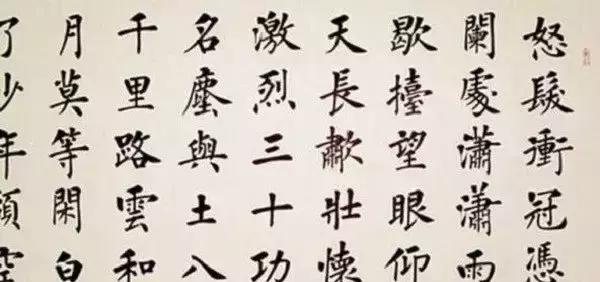 怒髮衝冠憑
闌處瀟瀟雨
歇擡望眼仰
天長歗壯懷
激烈三十功
名塵與土八
千里路雲和
月莫等閑白
了少年頭空